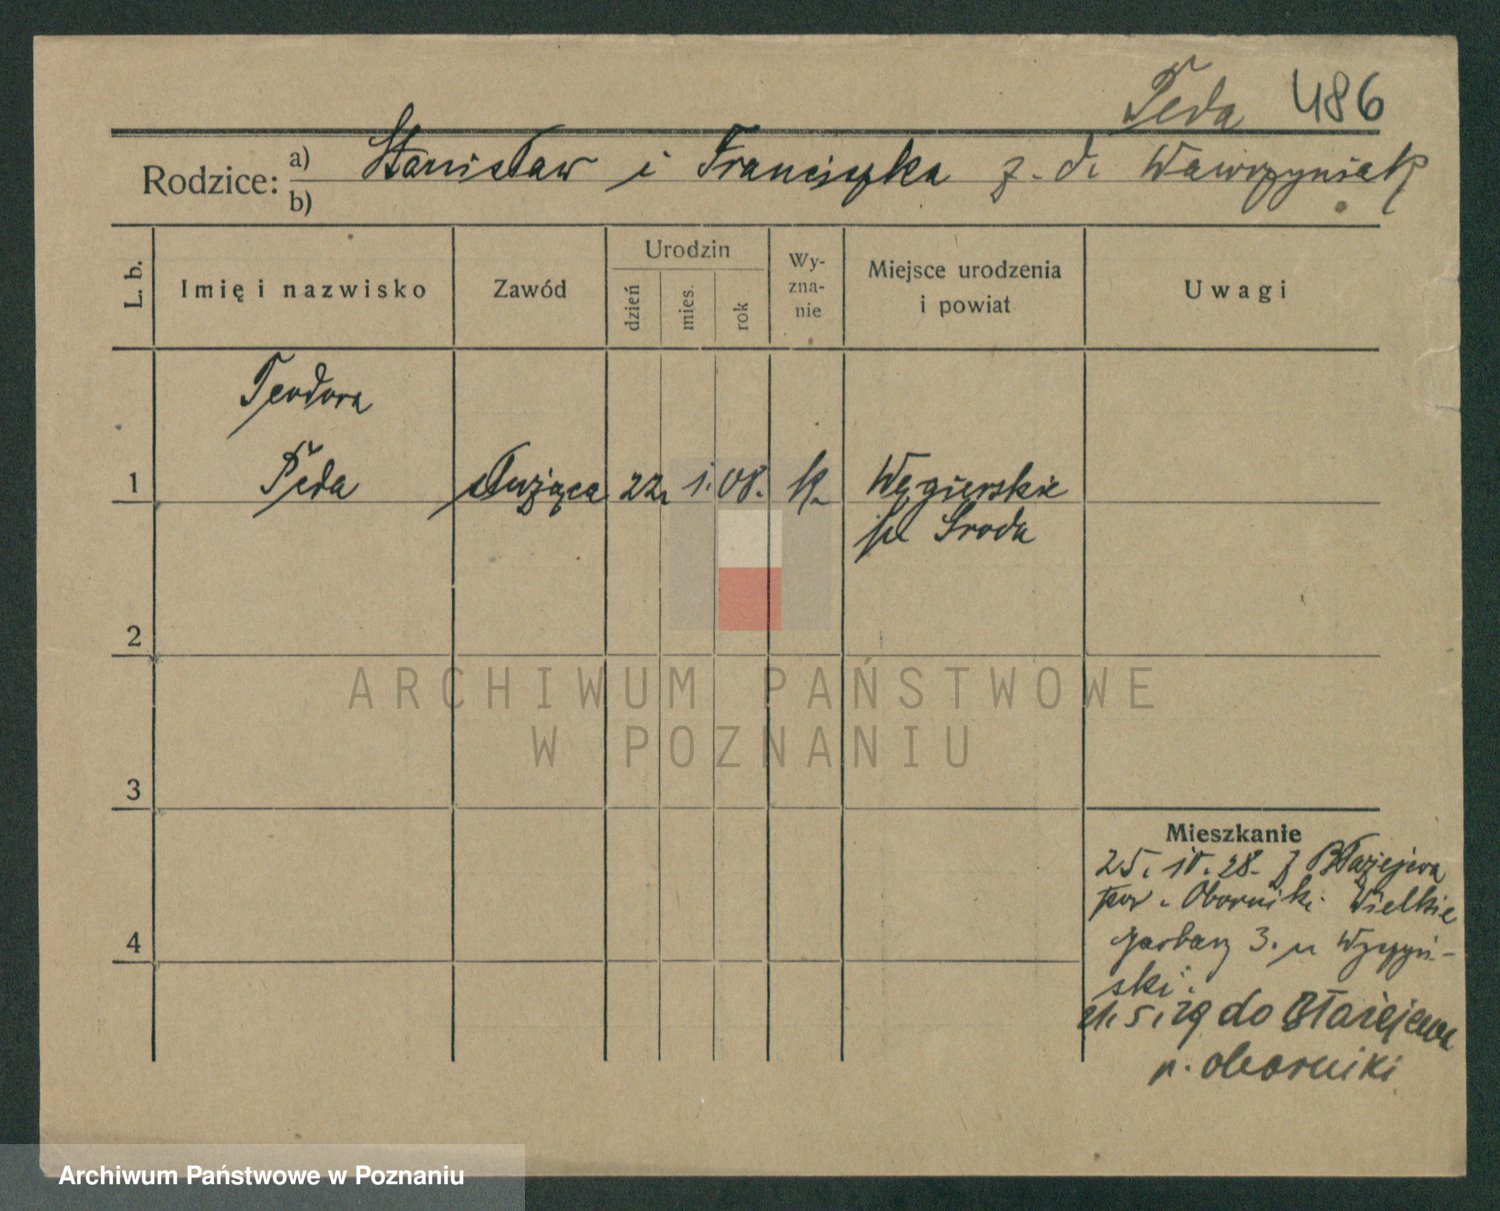 Peda 486
Rodzice: a) Stanisław i Franciszka z. d. Wawrzyniak
b)
L. b.
Imię i nazwisko
Zawód
Urodzin
dzień
mies.
rok
Wy-
zna-
nie
Miejsce urodzenia
i powiat
Uwagi
Teodora
1 Peda służąca 22. 1. 08. k. Węgierskie
Środa
2
3
4
ARCHIWUM PAŃSTWOWE
W POZNANIU
Mieszkanie
25. 10. 28. z Błażejewa
pow. Oborniki Wielkie
Garbary 3. u Wyczyń-
ski.
21. 5. 29 do Błażejewa
p. Oborniki
Archiwum Państwowe w Poznaniu